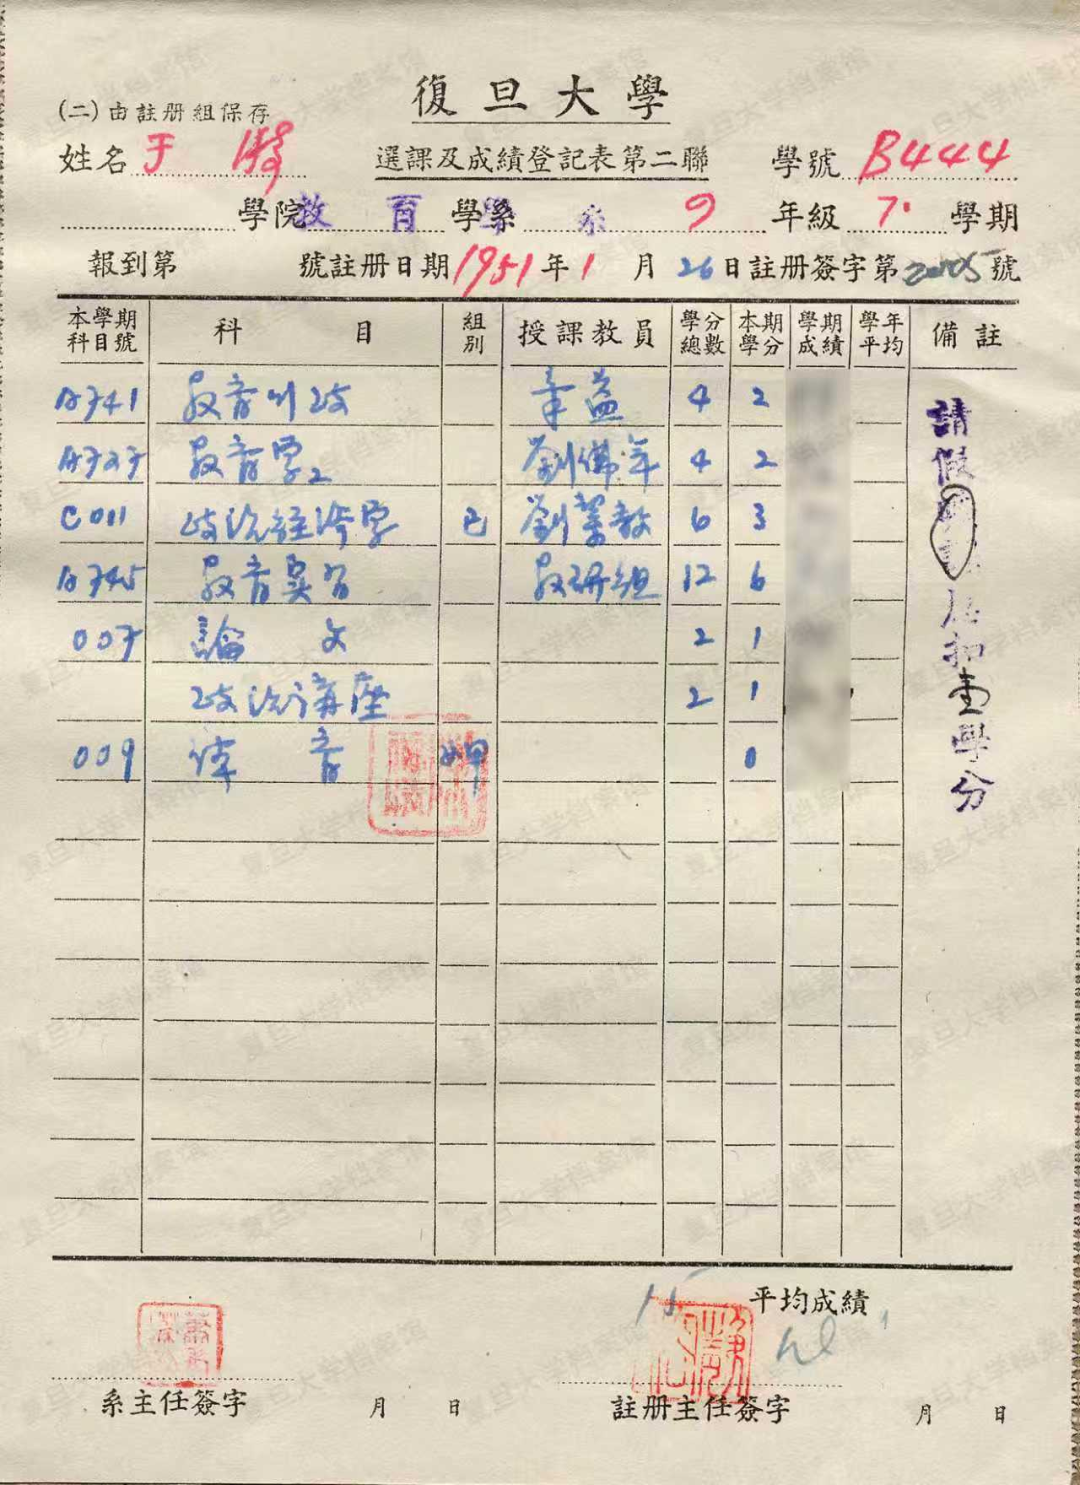 復旦大學
(二)由註册組保存
姓名 于 選課及成績登記表第二聯 學號 B4444
學院 教育學系 學系 年級 7. 學期
報到第 號註册日期 1951年1月26日註册簽字第 號
本學期科目號 科目 組別 授課教員 學分總數 本期學分 學期成績 學年平均 備註
教育行政 章益 4 2
教育學2 劉佛年 4 2
C011 政治經濟學 6 3
教育實習 教研組 12 6
論文 2 1
政治講座 2 1
009 體育 0
請假
扣壹學分
15 平均成績
系主任簽字 月 日 註册主任簽字 月 日